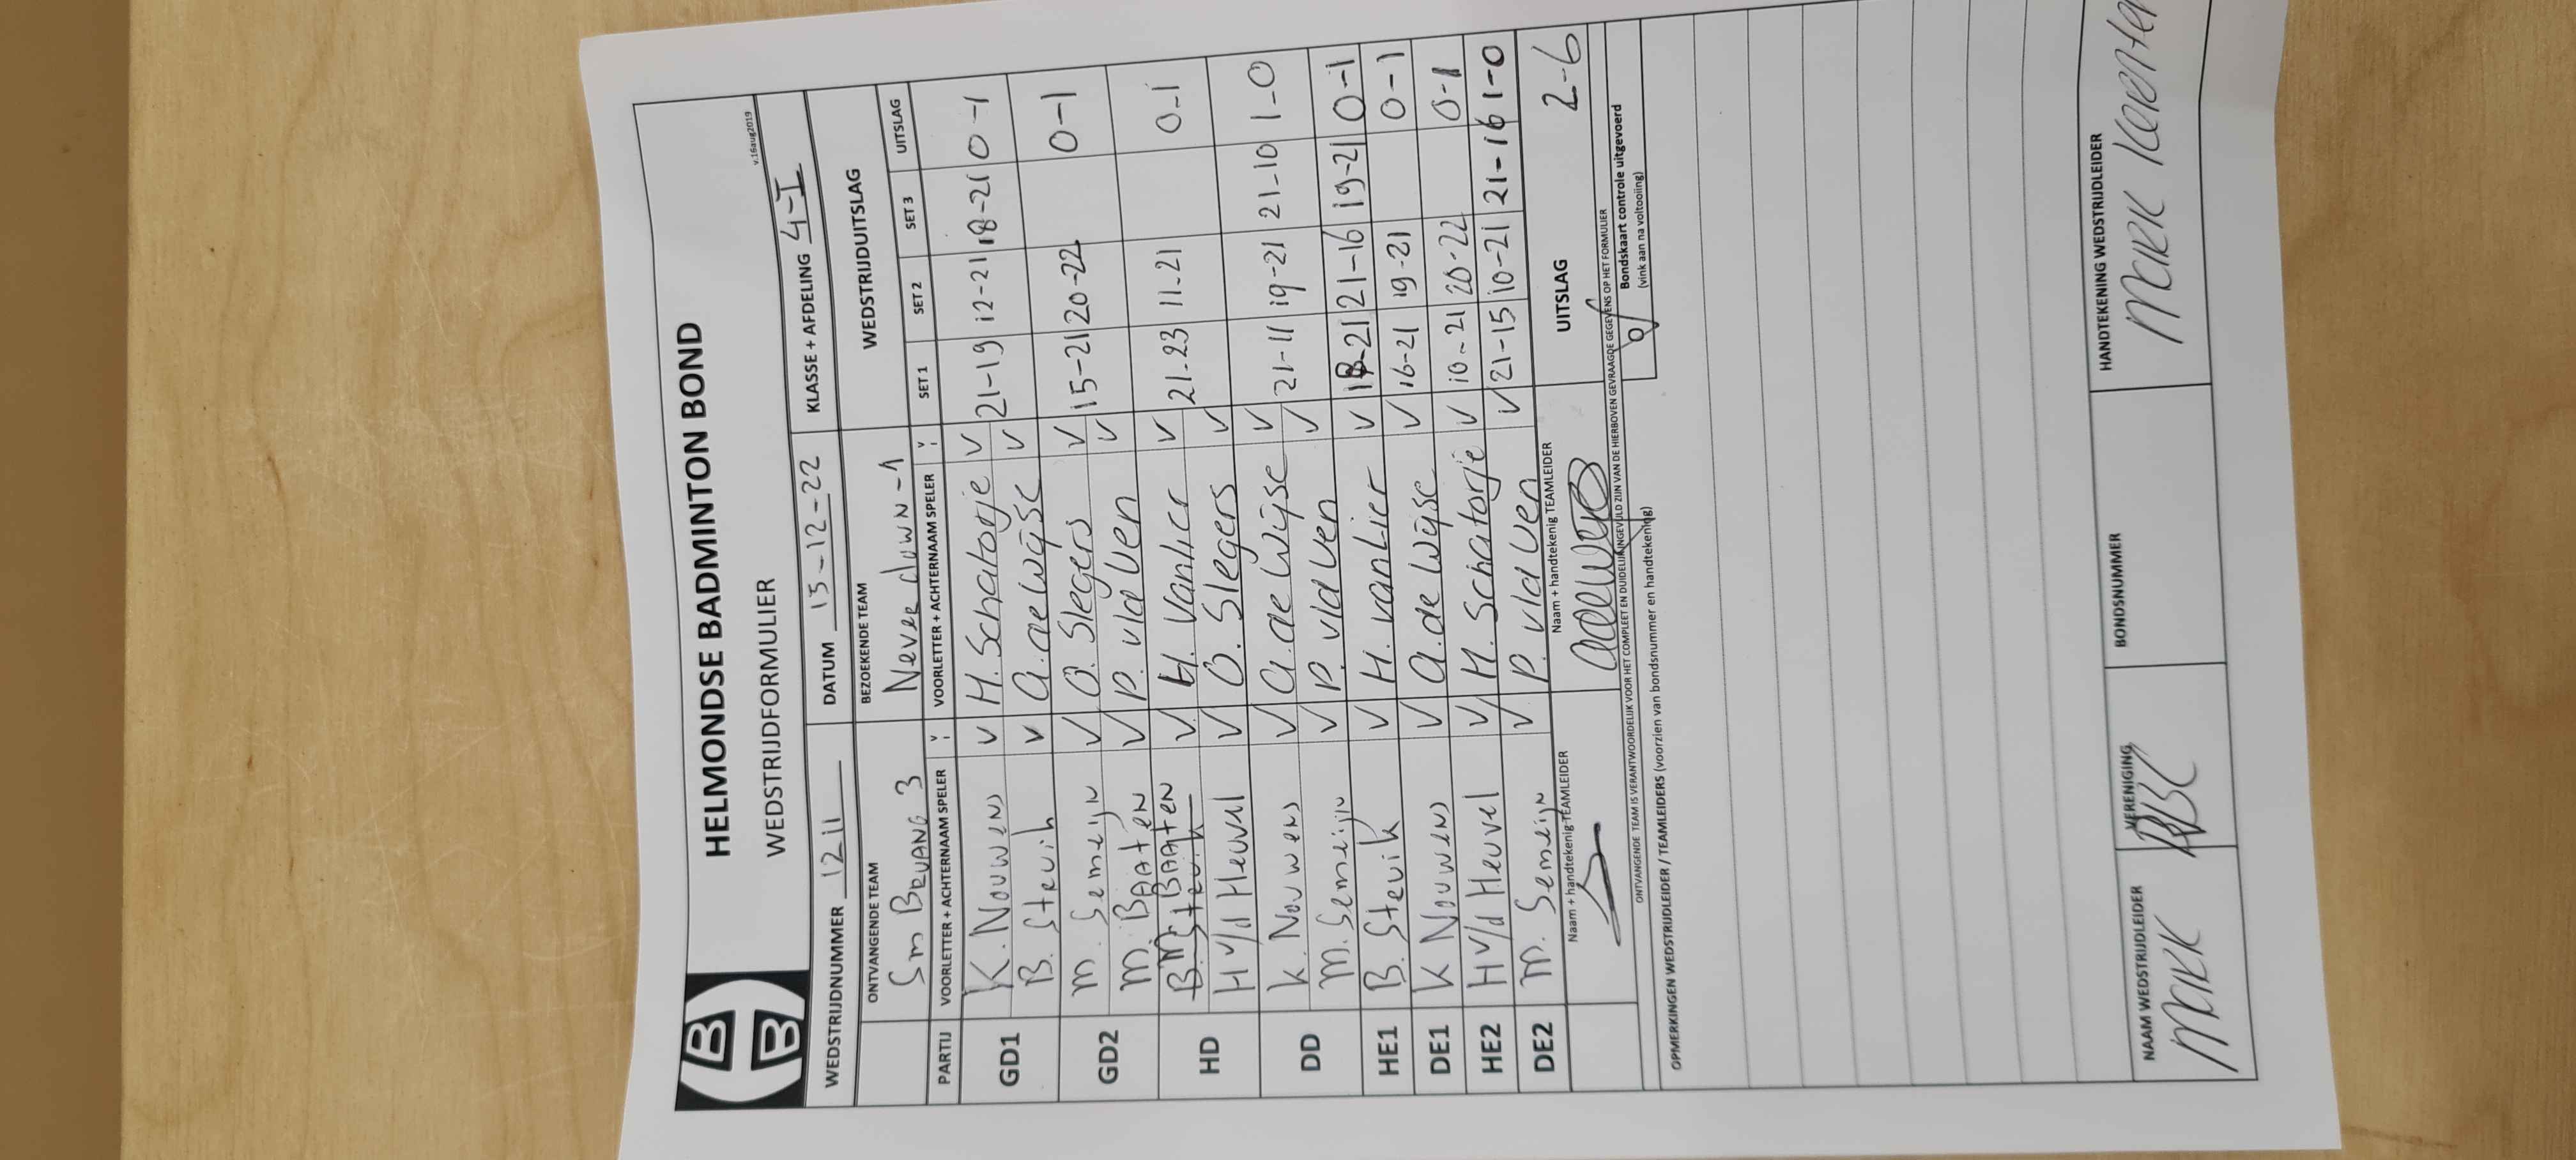 HELMONDSE BADMINTON BOND
WEDSTRIJDFORMULIER
v.16aug2019
WEDSTRIJDNUMMER 1211 DATUM 13-12-22 KLASSE + AFDELING 4-I
ONTVANGENDE TEAM BEZOEKENDE TEAM WEDSTRIJDUITSLAG
Sm BRUANG 3 Never down -1
PARTIJ VOORLETTER + ACHTERNAAM SPELER V VOORLETTER + ACHTERNAAM SPELER V SET 1 SET 2 SET 3 UITSLAG
GD1 K. Nouwens V H. Schatorje V 21-19 12-21 18-21 0-1
B. Stevik V A. de Wijse V
GD2 M. Semeijn V O. Slegers V 15-21 20-22 0-1
M. BAAteN V P. v/d Ven V
HD M. BAAteN V H. van Lier V 21-23 11-21 0-1
H v/d Heuvel V O. Slegers V
DD K. Nouwens V A. de Wijse V 21-11 19-21 21-10 1-0
M. Semeijn V P. v/d Ven V
HE1 B. Stevik V H. van Lier V 18-21 21-16 19-21 0-1
DE1 K Nouwens V A. de Wijse V 16-21 19-21 0-1
HE2 H v/d Heuvel V H. Schatorje V 10-21 20-22 0-1
DE2 M. Semeijn V P. v/d Ven V 21-15 10-21 21-16 1-0
Naam + handtekenig TEAMLEIDER Naam + handtekenig TEAMLEIDER UITSLAG 2-6
ONTVANGENDE TEAM IS VERANTWOORDELIJK VOOR HET COMPLEET EN DUIDELIJK INGEVULD ZIJN VAN DE HIERBOVEN GEVRAAGDE GEGEVENS OP HET FORMULIER
O Bondskaart controle uitgevoerd
(vink aan na voltooiing)
OPMERKINGEN WEDSTRIJDLEIDER / TEAMLEIDERS (voorzien van bondsnummer en handtekening)
NAAM WEDSTRIJDLEIDER VERENIGING BONDSNUMMER HANDTEKENING WEDSTRIJDLEIDER
MARK BBC MARK